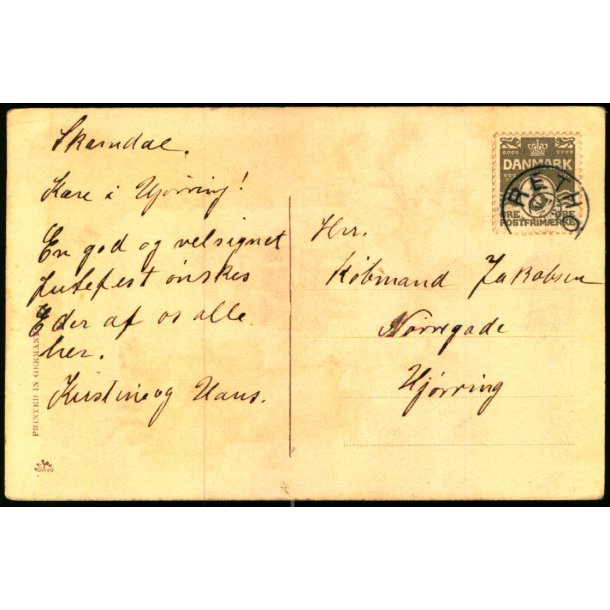 Skarndal.
Kære i Hjørring!
En god og velsignet
Julefest ønskes
Eder af os alle
her.
Kirstine og Hans.
PRINTED IN GERMANY
DANMARK
ØRE ØRE
POSTFRIMÆRKE
RETHO
Hrr.
Købmand Jakobsen
Nørregade
Hjørring